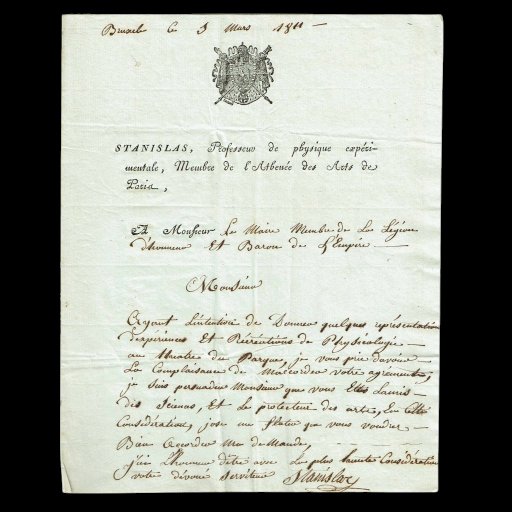 Bruxel ce 5 Mars 1811
STANISLAS, Professeur de physique expéri-
mentale, Membre de l'Athenée des Arts de
Paris,
A Monsieur Le Maire Membre de La Légion
d'honneur Et Baron de L'Empire
Monsieur
Ayant L'intention de Donner quelques représentations
d'expériences Et Récréations de Physicologie
au théatre du Parque, je vous prie d'avoir
La Complaisance de M'accorder votre agrément,
je suis persuader Monsieur que vous Ettes L'amis
des Sciens, Et Le protecteur des arts, En Cette
Considération, jose me flater que vous voudrer
Bien accorder Ma demande,
j'ai L'honneur d'être avec La plus haute Considération
votre dévoué serviteur Stanislas